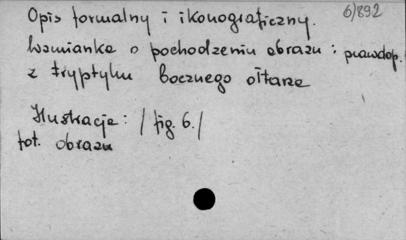 6/892
Opis formalny i ikonograficzny.
Wzmianka o pochodzeniu obrazu : prawdop.
z tryptyku bocznego ołtarza
Ilustracje : / fig. 6. /
fot. obrazu